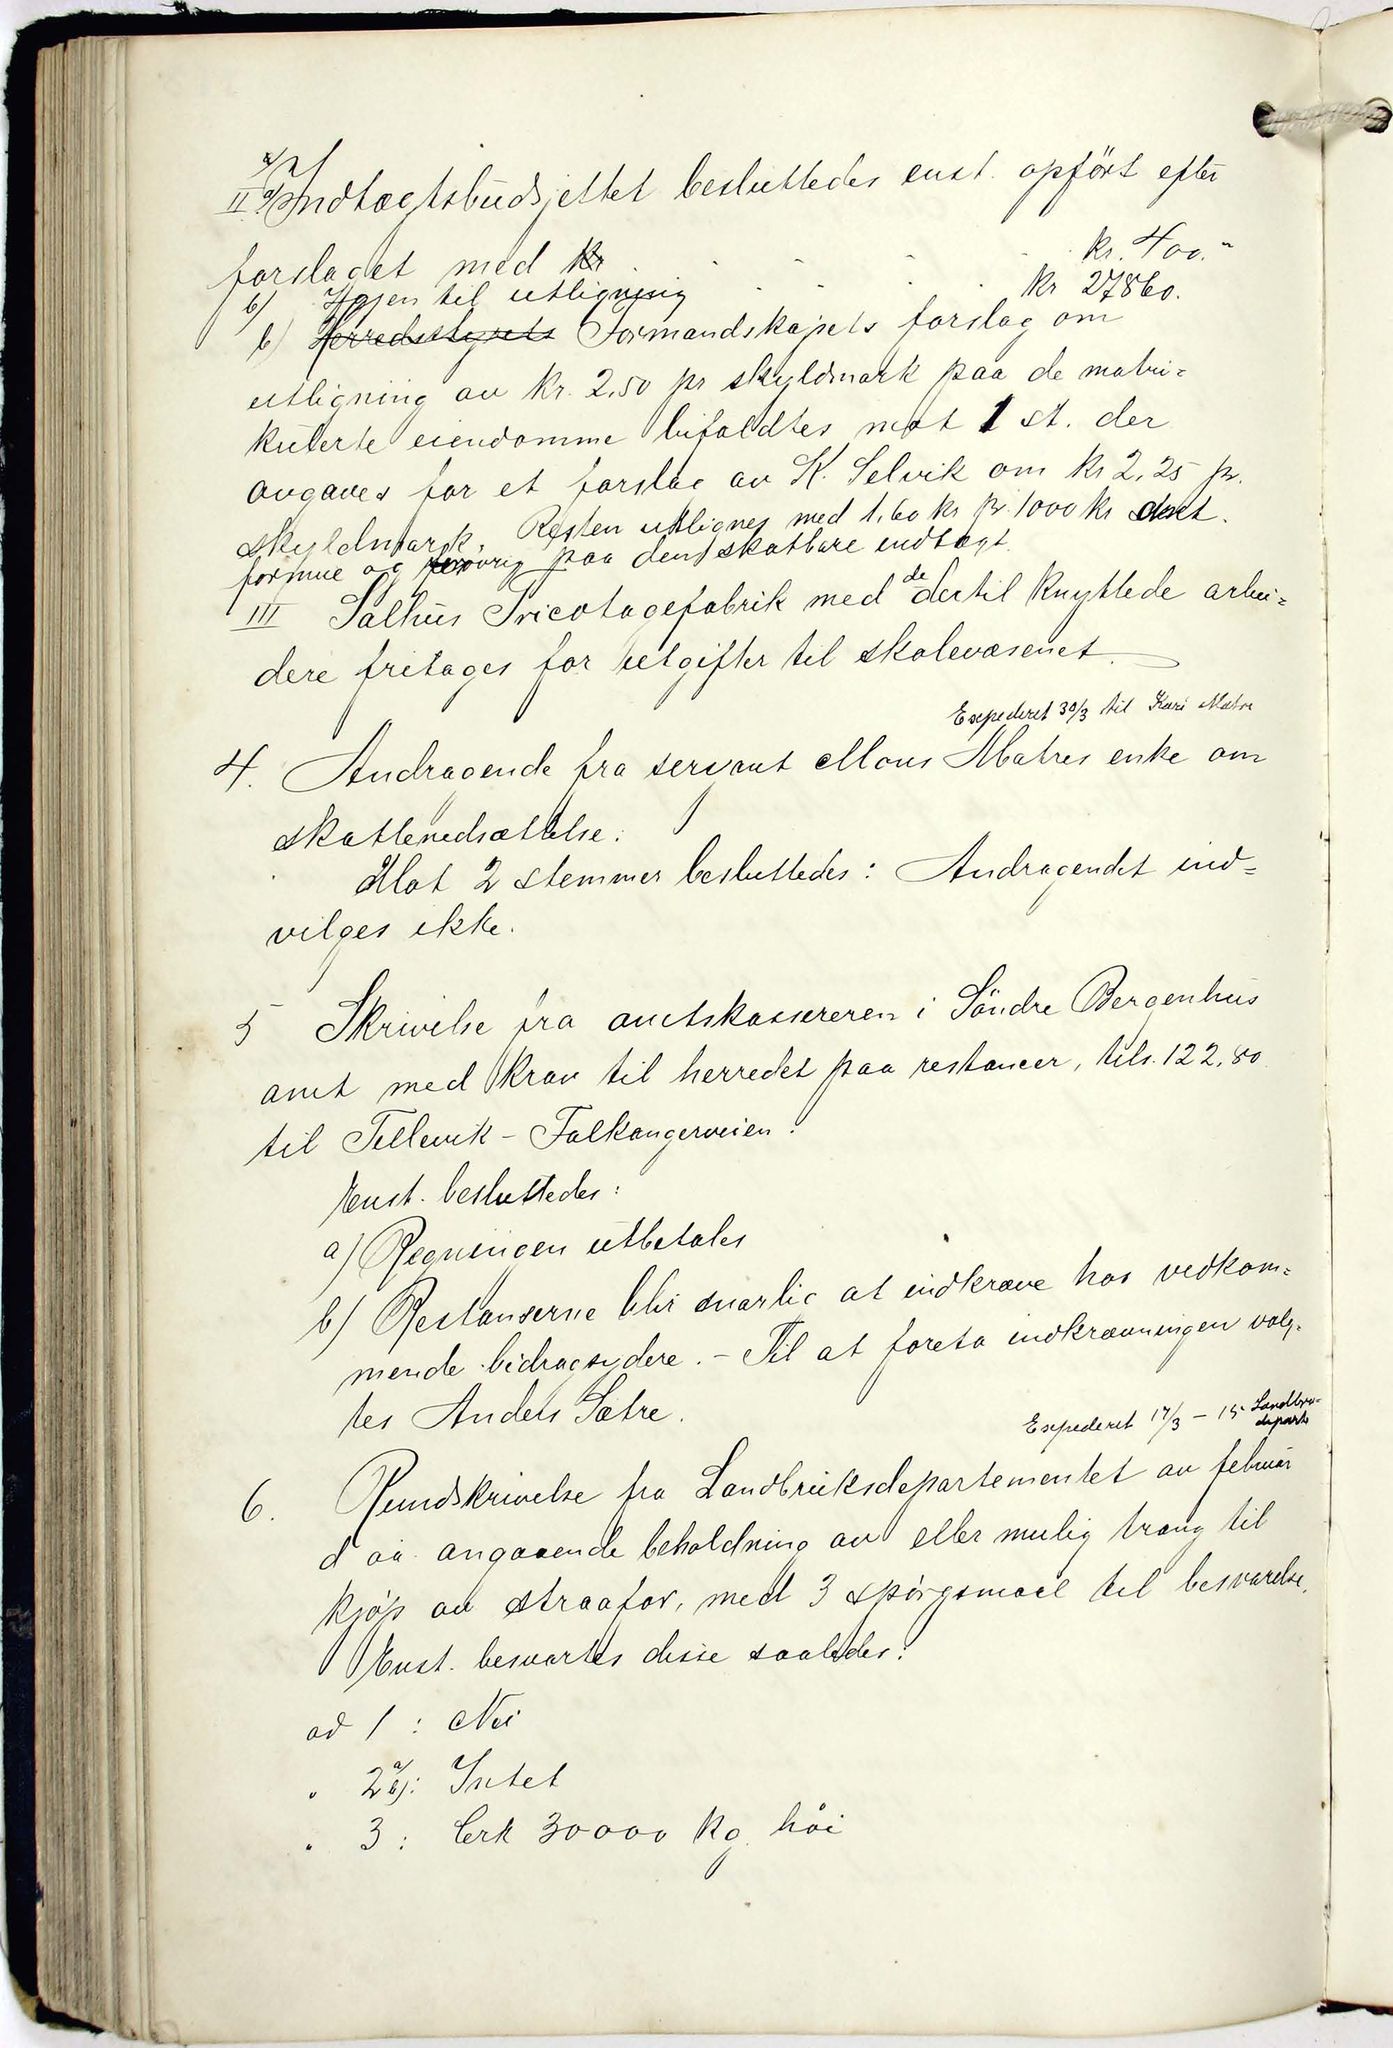 II a) Indtægtsbudsjettet besluttedes enst. opført efter
forslaget med kr . . . . . kr. 400.-
b) Igjen til utligning . . . . . kr 27860.
b) Herredsstyrets Formandskapets forslag om
utligning av kr. 2,50 pr skyldmark paa de matri=
kulerte eiendomme bifaldtes mot 1 st. der
avgaves for et forslag av K. Selvik om kr 2,25 pr.
skyldmark. Resten utlignes med 1,60 kr pr. 1000 kr
formue og forøvrig paa den skatbare indtægt.
III Salhus Tricotagefabrik med de dertil knyttede arbei=
dere fritages for utgifter til skolevæsenet.
Expederet 30/3 til Kari Matre
4. Andragende fra sersjant Mons Matres enke om
skattenedsættelse.
Mot 2 stemmer besluttedes: Andragendet ind=
vilges ikke.
5 Skrivelse fra amtskassereren i Söndre Bergenhus
amt med krav til herredet paa restancer, tils. 122,80
til Tellevik - Falkangerveien.
Enst. besluttedes:
a) Regningen utbetales
b) Restanserne blir snarlig at indkræve hos vedkom=
mende bidragsydere. - Til at foreta indkrævningen valg=
tes Anders Sætre.
Expederet 17/3 - 15 Landbru-
departe
6. Rundskrivelse fra Landbruksdepartementet av februar
d aa. angaaende beholdning av eller mulig trang til
kjøp av straafor, med 3 spörgsmaal til besvarelse.
Enst. besvartes disse saaledes:
ad 1 : Nei
" 2 a/b): Intet
" 3 : Crk 30000 kg. höi